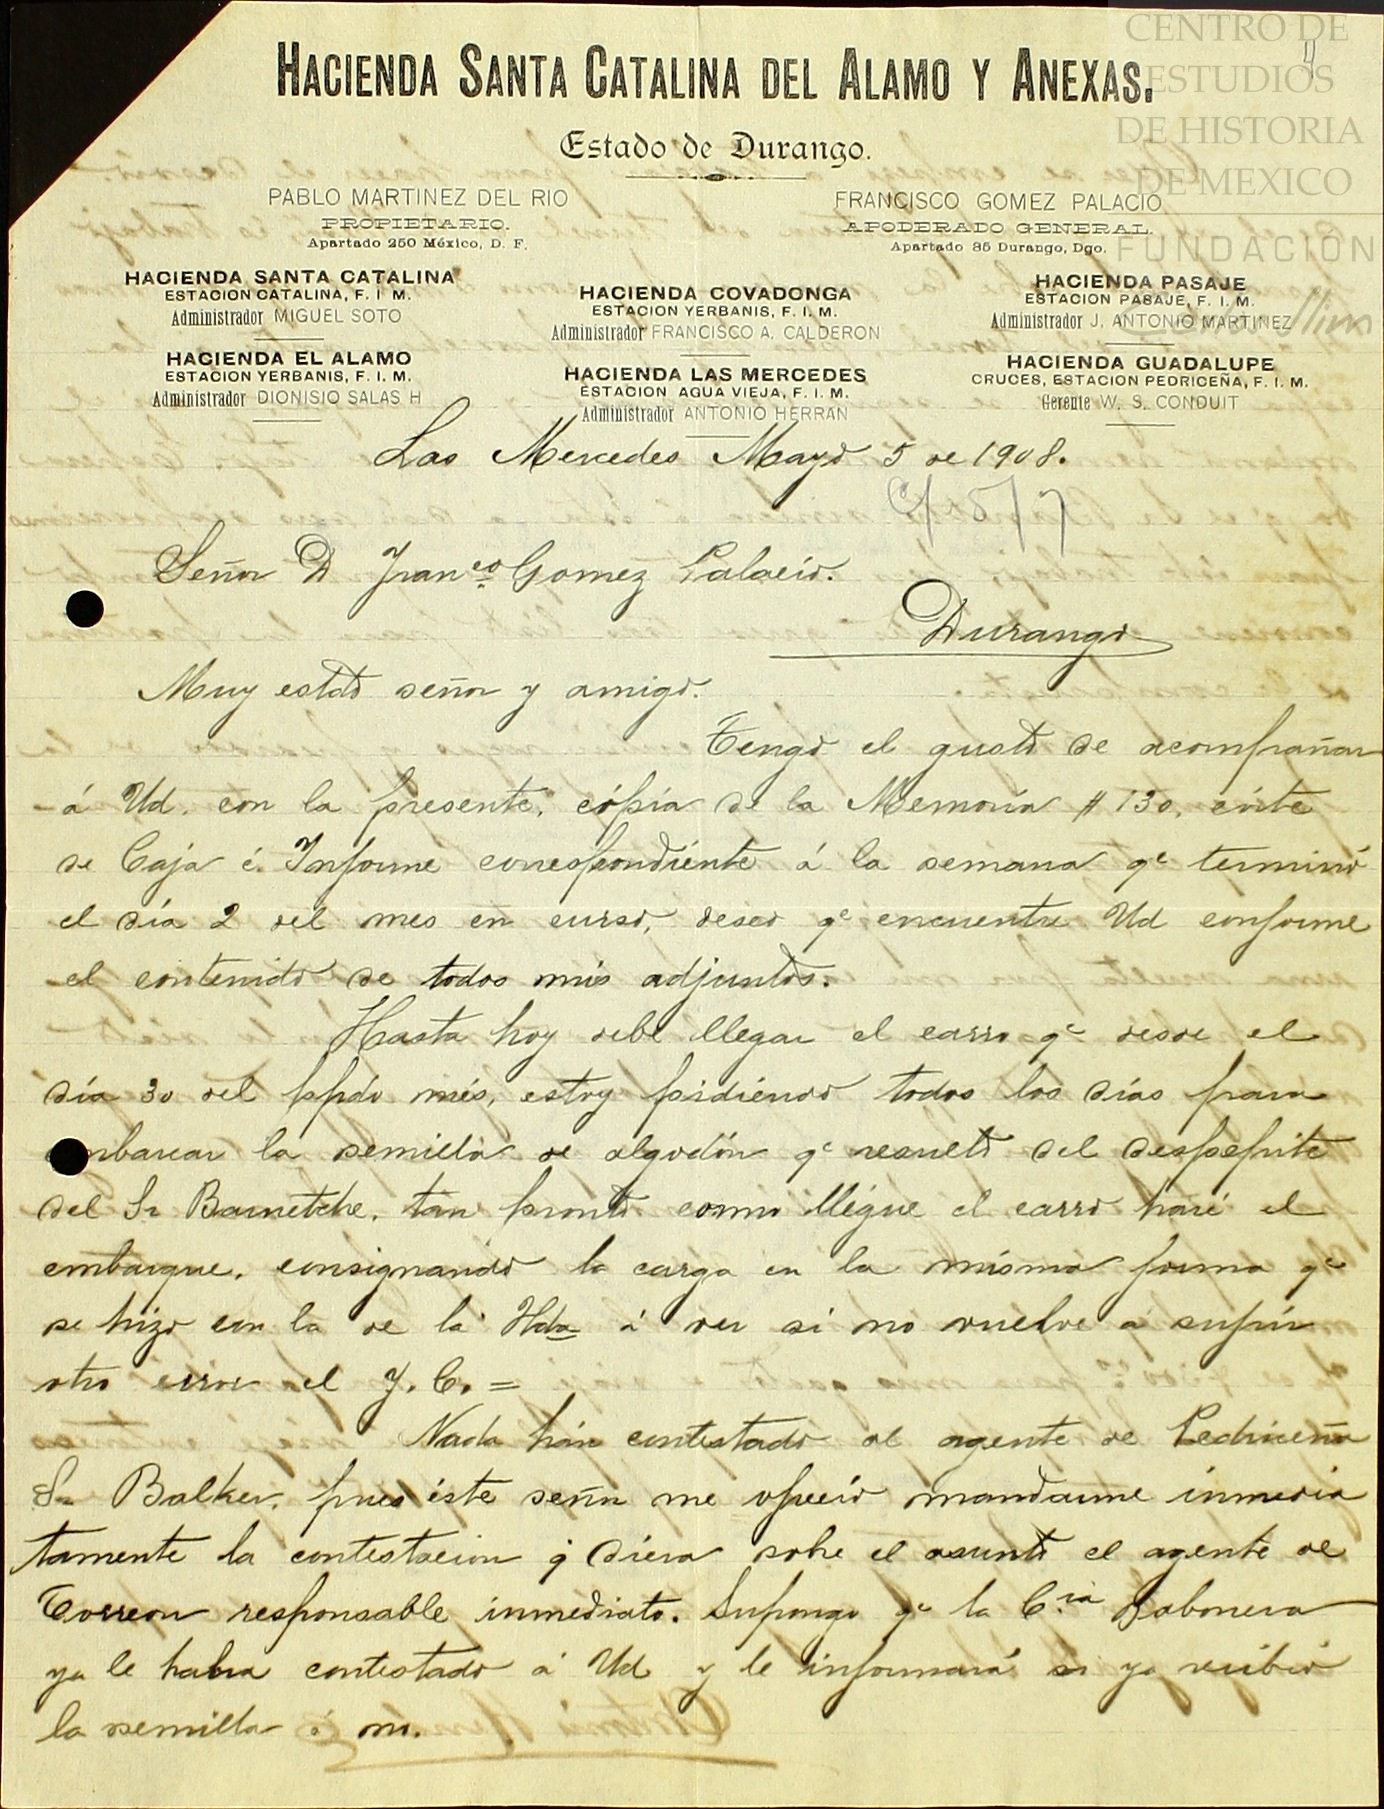 CENTRO DE
ESTUDIOS
DE HISTORIA
DE MEXICO
FUNDACION
HACIENDA SANTA CATALINA DEL ALAMO Y ANEXAS.
Estado de Durango.
PABLO MARTINEZ DEL RIO
PROPIETARIO.
Apartado 250 México, D. F.
FRANCISCO GOMEZ PALACIO
APODERADO GENERAL.
Apartado 35 Durango, Dgo.
HACIENDA SANTA CATALINA
ESTACION CATALINA, F. I M.
Administrador MIGUEL SOTO
HACIENDA EL ALAMO
ESTACION YERBANIS, F. I. M.
Administrador DIONISIO SALAS H
HACIENDA COVADONGA
ESTACION YERBANIS, F. I. M.
Administrador FRANCISCO A. CALDERON
HACIENDA LAS MERCEDES
ESTACION AGUA VIEJA, F. I. M.
Administrador ANTONIO HERRAN
HACIENDA PASAJE
ESTACION PASAJE, F. I. M.
Administrador J. ANTONIO MARTINEZ
HACIENDA GUADALUPE
CRUCES, ESTACION PEDRICEÑA, F. I. M.
Gerente W. S. CONDUIT
Las Mercedes Mayo 5 de 1908.
C/ 5/7
Señor D Franco Gomez Palacio.
Durango
Muy estdo señor y amigo.
Tengo el gusto de acompañar
á Ud. con la presente, cópia de la Memoria # 130, córte
de Caja é Informe correspondiente á la semana qe terminó
el día 2 del mes en curso, deseo qe encuentre Ud conforme
el contenido de todos mis adjuntos.
Hasta hoy debe llegar el carro qe desde el
día 30 del ppdo més, estoy pidiendo todos los días para
embarcar la semilla de algodón qe resultó del despepite
del Sr Barnetche, tan pronto como llégue el carro haré el
embarque, consignando la carga en la misma forma qe
se hizo con la de la Hda á ver si no vuelve á sufrir
otro error el F. C. =
Nada hán contestado al agente de Pedriceña
Sr Balker, pues éste señor me ofreció mandarme inmedia
tamente la contestacion q diera sobre el asunto el agente de
Torreon responsable inmediato. Supongo qe la Cia Jabonera
ya le habra contestado á Ud y le informará si ya recibió
la semilla ó no.